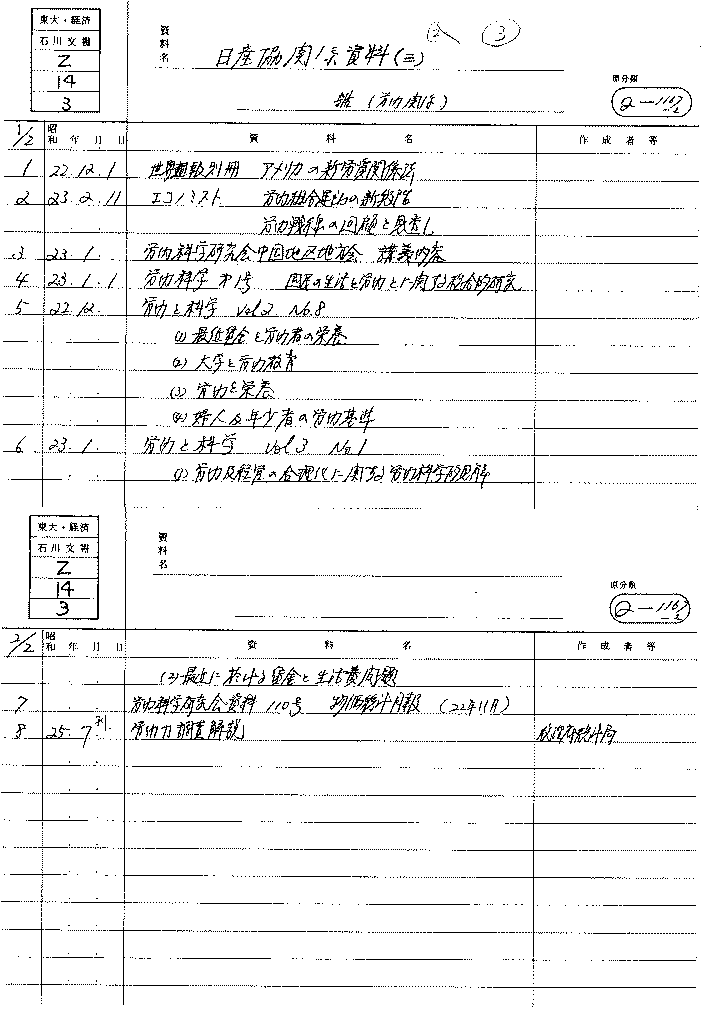 東大・経済
石川文書
Z
14
3
資料名
② ③
日産協関係資料(三)
雑 (労働関係)
原分類
Q-1167-2
1/2 昭和 年 月 日 資 料 名 作成者等
1 22.12.1 世界週報別冊 アメリカの新労資関係法
2 23.2.11 エコノミスト 労働組合運動の新段階
労働戦線の回顧と見透し
3 23.1. 労働科学研究会中国地区地方会 講義内容
4 23.1.1 労働科学 オ1号 国民の生活と労働とに関する綜合的研究
5 22.12. 労働と科学 Vol 2 No.8
(1) 最低賃金と労働者の栄養
(2) 大学と労働教育
(3) 労働と栄養
(4) 婦人及年少者の労働基準
6 23.1. 労働と科学 Vol 3 No.1
(1) 労働及経営の合理化に関する労働科学的見解
東大・経済
石川文書
Z
14
3
資料名
原分類
Q-1167-2
2/2 昭和 年 月 日 資 料 名 作成者等
(2) 最近に於ける賃金と生活費問題
7 労働科学研究会資料 110号 物価統計月報 (22年11月)
8 25.7 労働力調査解説 統計局